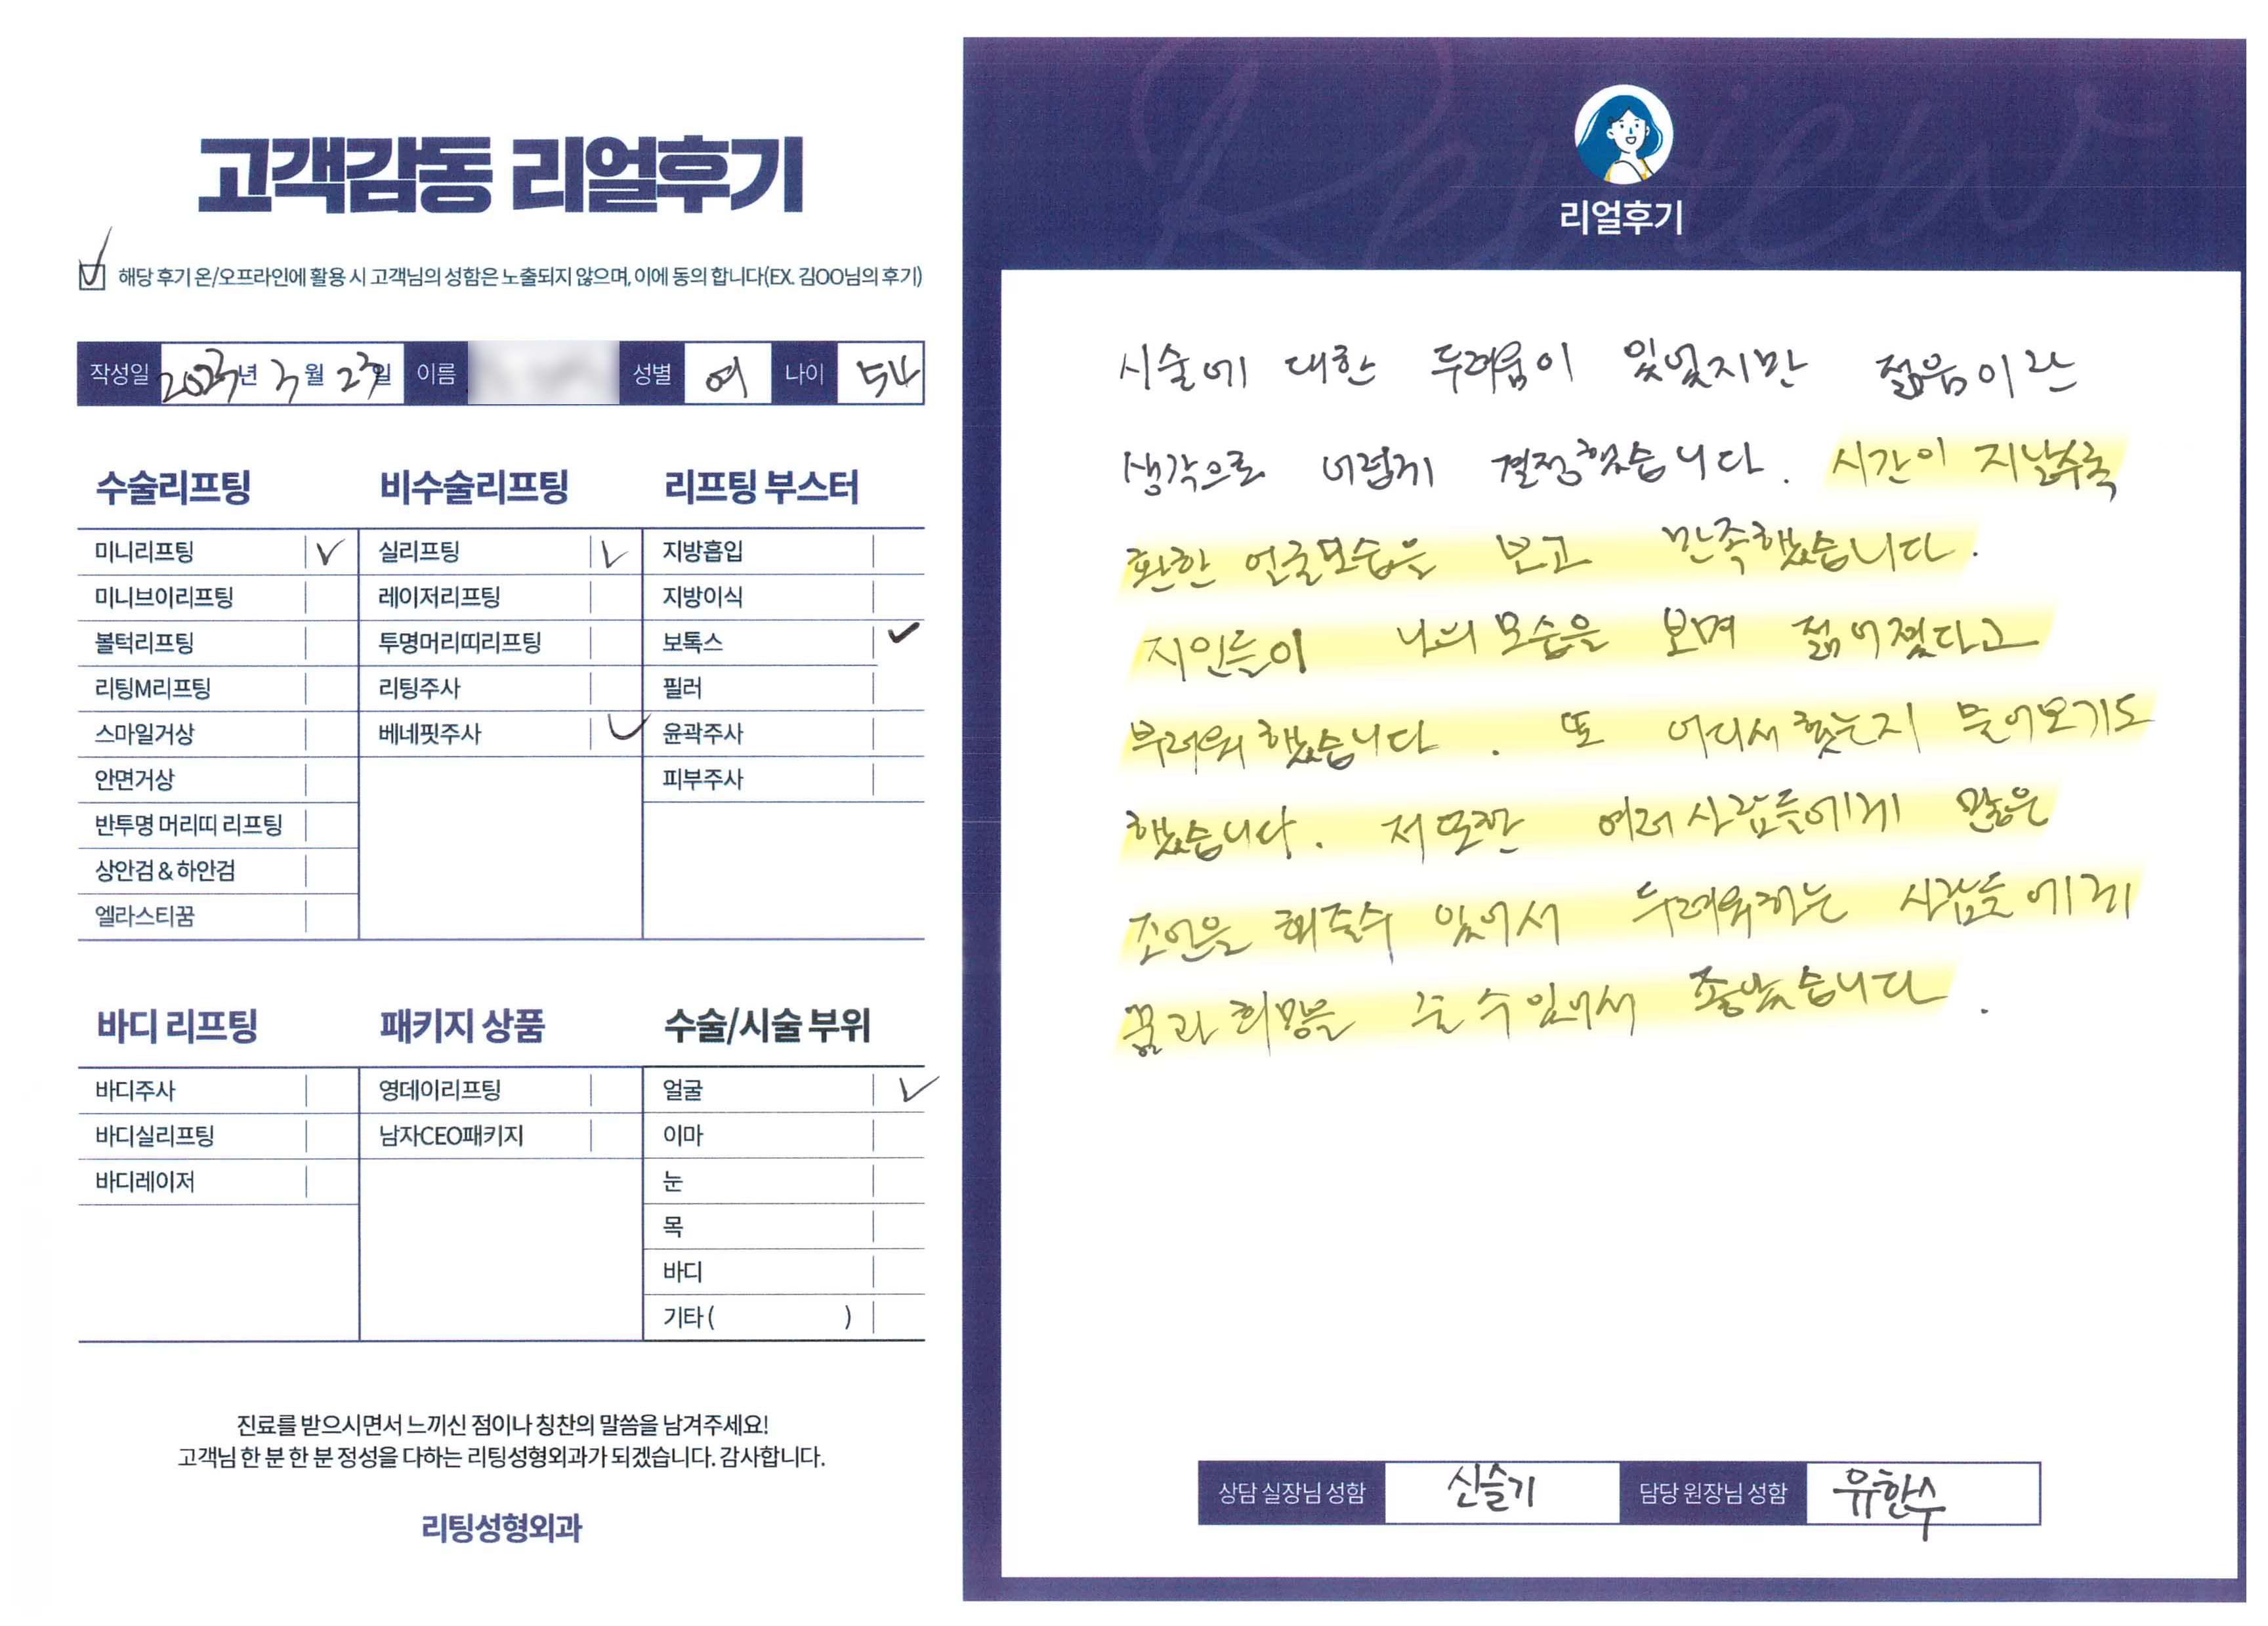 고객감동 리얼후기
✓ 해당 후기 온/오프라인에 활용 시 고객님의 성함은 노출되지 않으며, 이에 동의 합니다(EX. 김OO님의 후기)
작성일 2023년 3월 23일 이름 성별 여 나이 54
수술리프팅
미니리프팅 ✓
미니브이리프팅
볼턱리프팅
리팅M리프팅
스마일거상
안면거상
반투명 머리띠 리프팅
상안검 & 하안검
엘라스티꿈
비수술리프팅
실리프팅 ✓
레이저리프팅
투명머리띠리프팅
리팅주사
베네핏주사 ✓
리프팅 부스터
지방흡입
지방이식
보톡스 ✓
필러
윤곽주사
피부주사
바디 리프팅
바디주사
바디실리프팅
바디레이저
패키지 상품
영데이리프팅
남자CEO패키지
수술/시술 부위
얼굴 ✓
이마
눈
목
바디
기타 ( )
진료를 받으시면서 느끼신 점이나 칭찬의 말씀을 남겨주세요!
고객님 한 분 한 분 정성을 다하는 리팅성형외과가 되겠습니다. 감사합니다.
리팅성형외과
Review
리얼후기
시술에 대한 두려움이 있었지만 젊음이란
생각으로 어렵게 결정했습니다. 시간이 지날수록
환한 얼굴모습을 보고 만족했습니다.
지인들이 나의 모습을 보며 젊어졌다고
부러워 했습니다. 또 어디서 했는지 물어보기도
했습니다. 저 또한 여러 사람들에게 많은
조언을 해줄수 있어서 두려워하는 사람들에게
꿈과 희망을 줄 수 있어서 좋았습니다.
상담 실장님 성함 신슬기 담당 원장님 성함 유한수